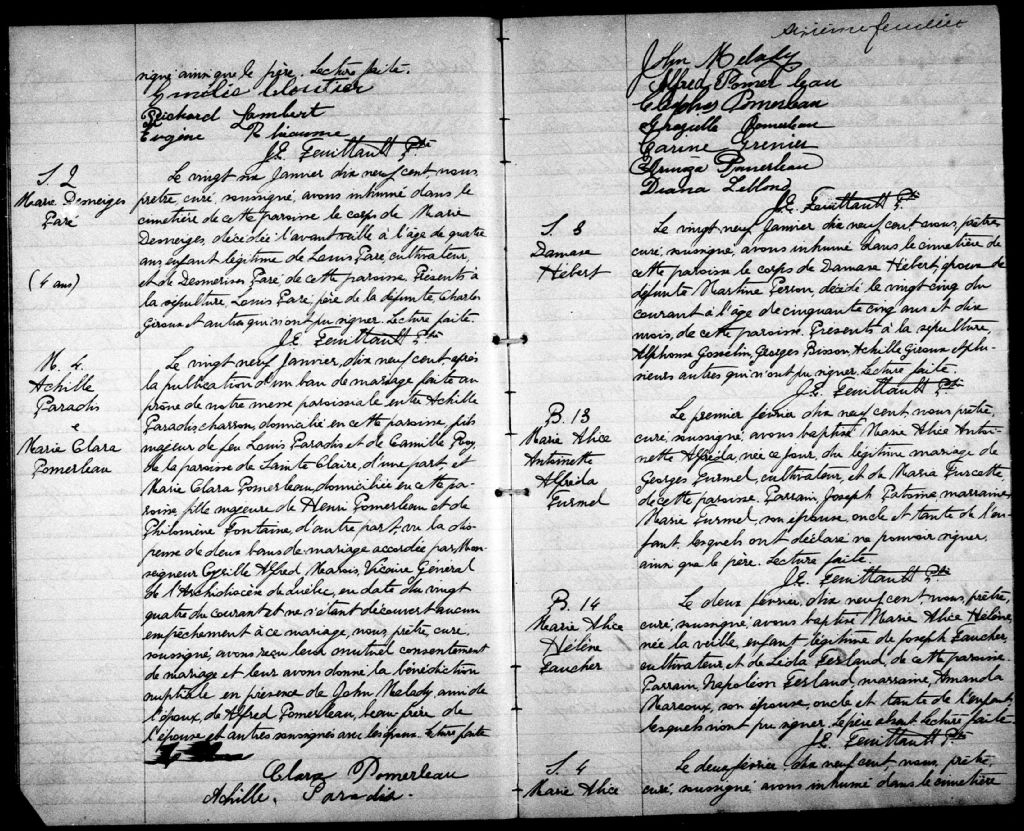 signé ainsi que le père. Lecture faite.
Cloutier
Richard Lambert
Eugène Rhéaume
J.E. Feuiltault Ptre
S. 2
Marie Desneiges
Paré
(4 ans)
Le vingt six Janvier dix neuf cent nous,
prêtre, curé, soussigné, avons inhumé dans le
cimetière de cette paroisse le corps de Marie
Desneiges, décédée l'avant veille à l'âge de quatre
ans, enfant légitime de Louis Paré, cultivateur,
et de Desmerise Paré de cette paroisse. Présents à
la sépulture, Louis Paré, père de la défunte, Charles
Giroux et autres qui n'ont pu signer. Lecture faite.
J.E. Feuiltault Ptre
M. 4.
Achille
Paradis
e
Marie Clara
Pomerleau
Le vingt neuf Janvier, dix neuf cent après
la publication d'un ban de mariage faite au
prône de notre messe paroissiale entre Achille
Paradis charron, domicilié en cette paroisse, fils
majeur de feu Louis Paradis et de Camille Roy,
de la paroisse de Sainte Claire, d'une part, et
Marie Clara Pomerleau, domiciliée en cette pa-
roisse, fille majeure de Henri Pomerleau et de
Philomène Fontaine, d'autre part, vu la dis-
pense de deux bans de mariage accordée par Mon-
seigneur Cyrille Alfred Marois, Vicaire Général
de l'Archidiocèse de Québec, en date du vingt
quatre du courant et ne s'étant découvert aucun
empêchement à ce mariage, nous, prêtre, curé,
soussigné, avons reçu leur mutuel consentement
de mariage et leur avons donné la bénédiction
nuptiale en présence de John Melady, ami de
l'époux, de Alfred Pomerleau, beau-frère de
l'épouse et autres soussignés avec les époux. Lecture faite
Clara Pomerleau
Achille Paradis
sixième feuillet
John Melady
Alfred Pomerleau
Cléophas Pomerleau
Graziella Pomerleau
Carine Grenier
Pomerleau
Diana Leblond
J.E. Feuiltault Ptre
S. 3
Damase
Hébert
Le vingt neuf Janvier dix neuf cent nous, prêtre
curé, soussigné, avons inhumé dans le cimetière de
cette paroisse le corps de Damase Hébert, époux de
défunte Martine Perron, décédé le vingt cinq du
courant à l'âge de cinquante cinq ans et dix
mois, de cette paroisse. Présents à la sépulture,
Alphonse Gosselin, Georges Bisson, Achille Giroux et plu-
sieurs autres qui n'ont pu signer. Lecture faite.
J.E. Feuiltault Ptre
B. 13
Marie Alice
Antoinette
Alfréda
Turmel
Le premier février dix neuf cent nous prêtre,
curé, soussigné, avons baptisé Marie Alice Antoi-
nette Alfréda, née ce jour, du légitime mariage de
Georges Turmel, cultivateur, et de Maria Turcotte
de cette paroisse. Parrain, Joseph Patoine, marraine,
Marie Turmel, son épouse, oncle et tante de l'en-
fant, lesquels ont déclaré ne pouvoir signer,
ainsi que le père. Lecture faite.
J.E. Feuiltault Ptre
B. 14
Marie Alice
Hélène
Faucher
Le deux février, dix neuf cent, nous, prêtre,
curé, soussigné, avons baptisé Marie Alice Hélène,
née la veille, enfant légitime de Joseph Faucher,
cultivateur, et de Léda Ferland, de cette paroisse.
Parrain, Napoléon Ferland, marraine, Amanda
Marcoux, son épouse, oncle et tante de l'enfant,
lesquels n'ont pu signer. Le père absent. Lecture faite
J.E. Feuiltault Ptre
S. 4
Marie Alice
Le deux février dix neuf cent nous, prêtre,
curé, soussigné, avons inhumé dans le cimetière